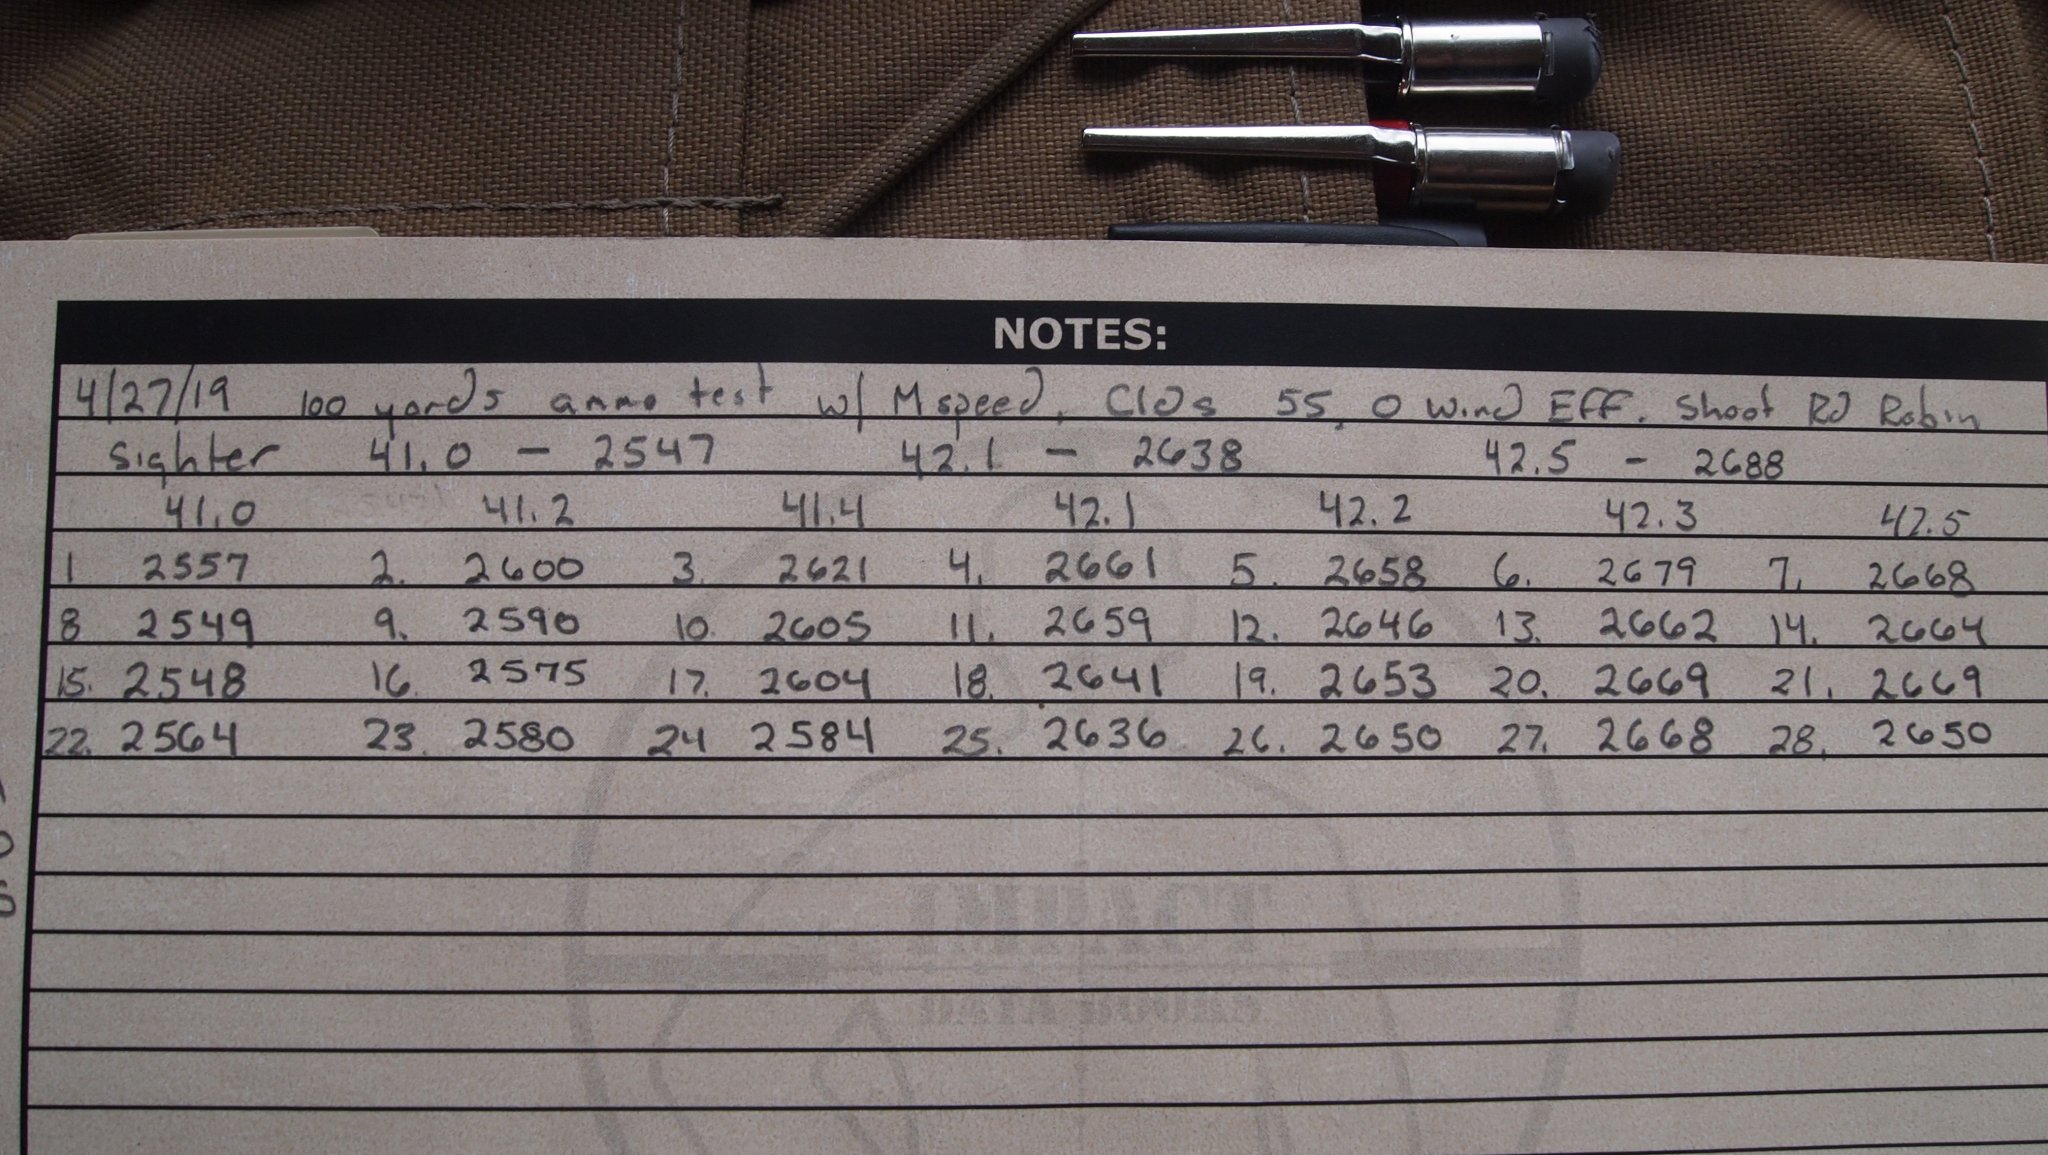 NOTES:
4/27/19 100 yards ammo test w/ Mspeed. Clds 55, 0 Wind Eff. Shoot Rd Robin
Sighter 41.0 - 2547 42.1 - 2638 42.5 - 2688
41.0 41.2 41.4 42.1 42.2 42.3 42.5
1 2557 2. 2600 3. 2621 4. 2661 5. 2658 6. 2679 7. 2668
8 2549 9. 2590 10. 2605 11. 2659 12. 2646 13. 2662 14. 2664
15. 2548 16. 2575 17. 2604 18. 2641 19. 2653 20. 2669 21. 2669
22. 2564 23. 2580 24 2584 25. 2636 26. 2650 27. 2668 28. 2650